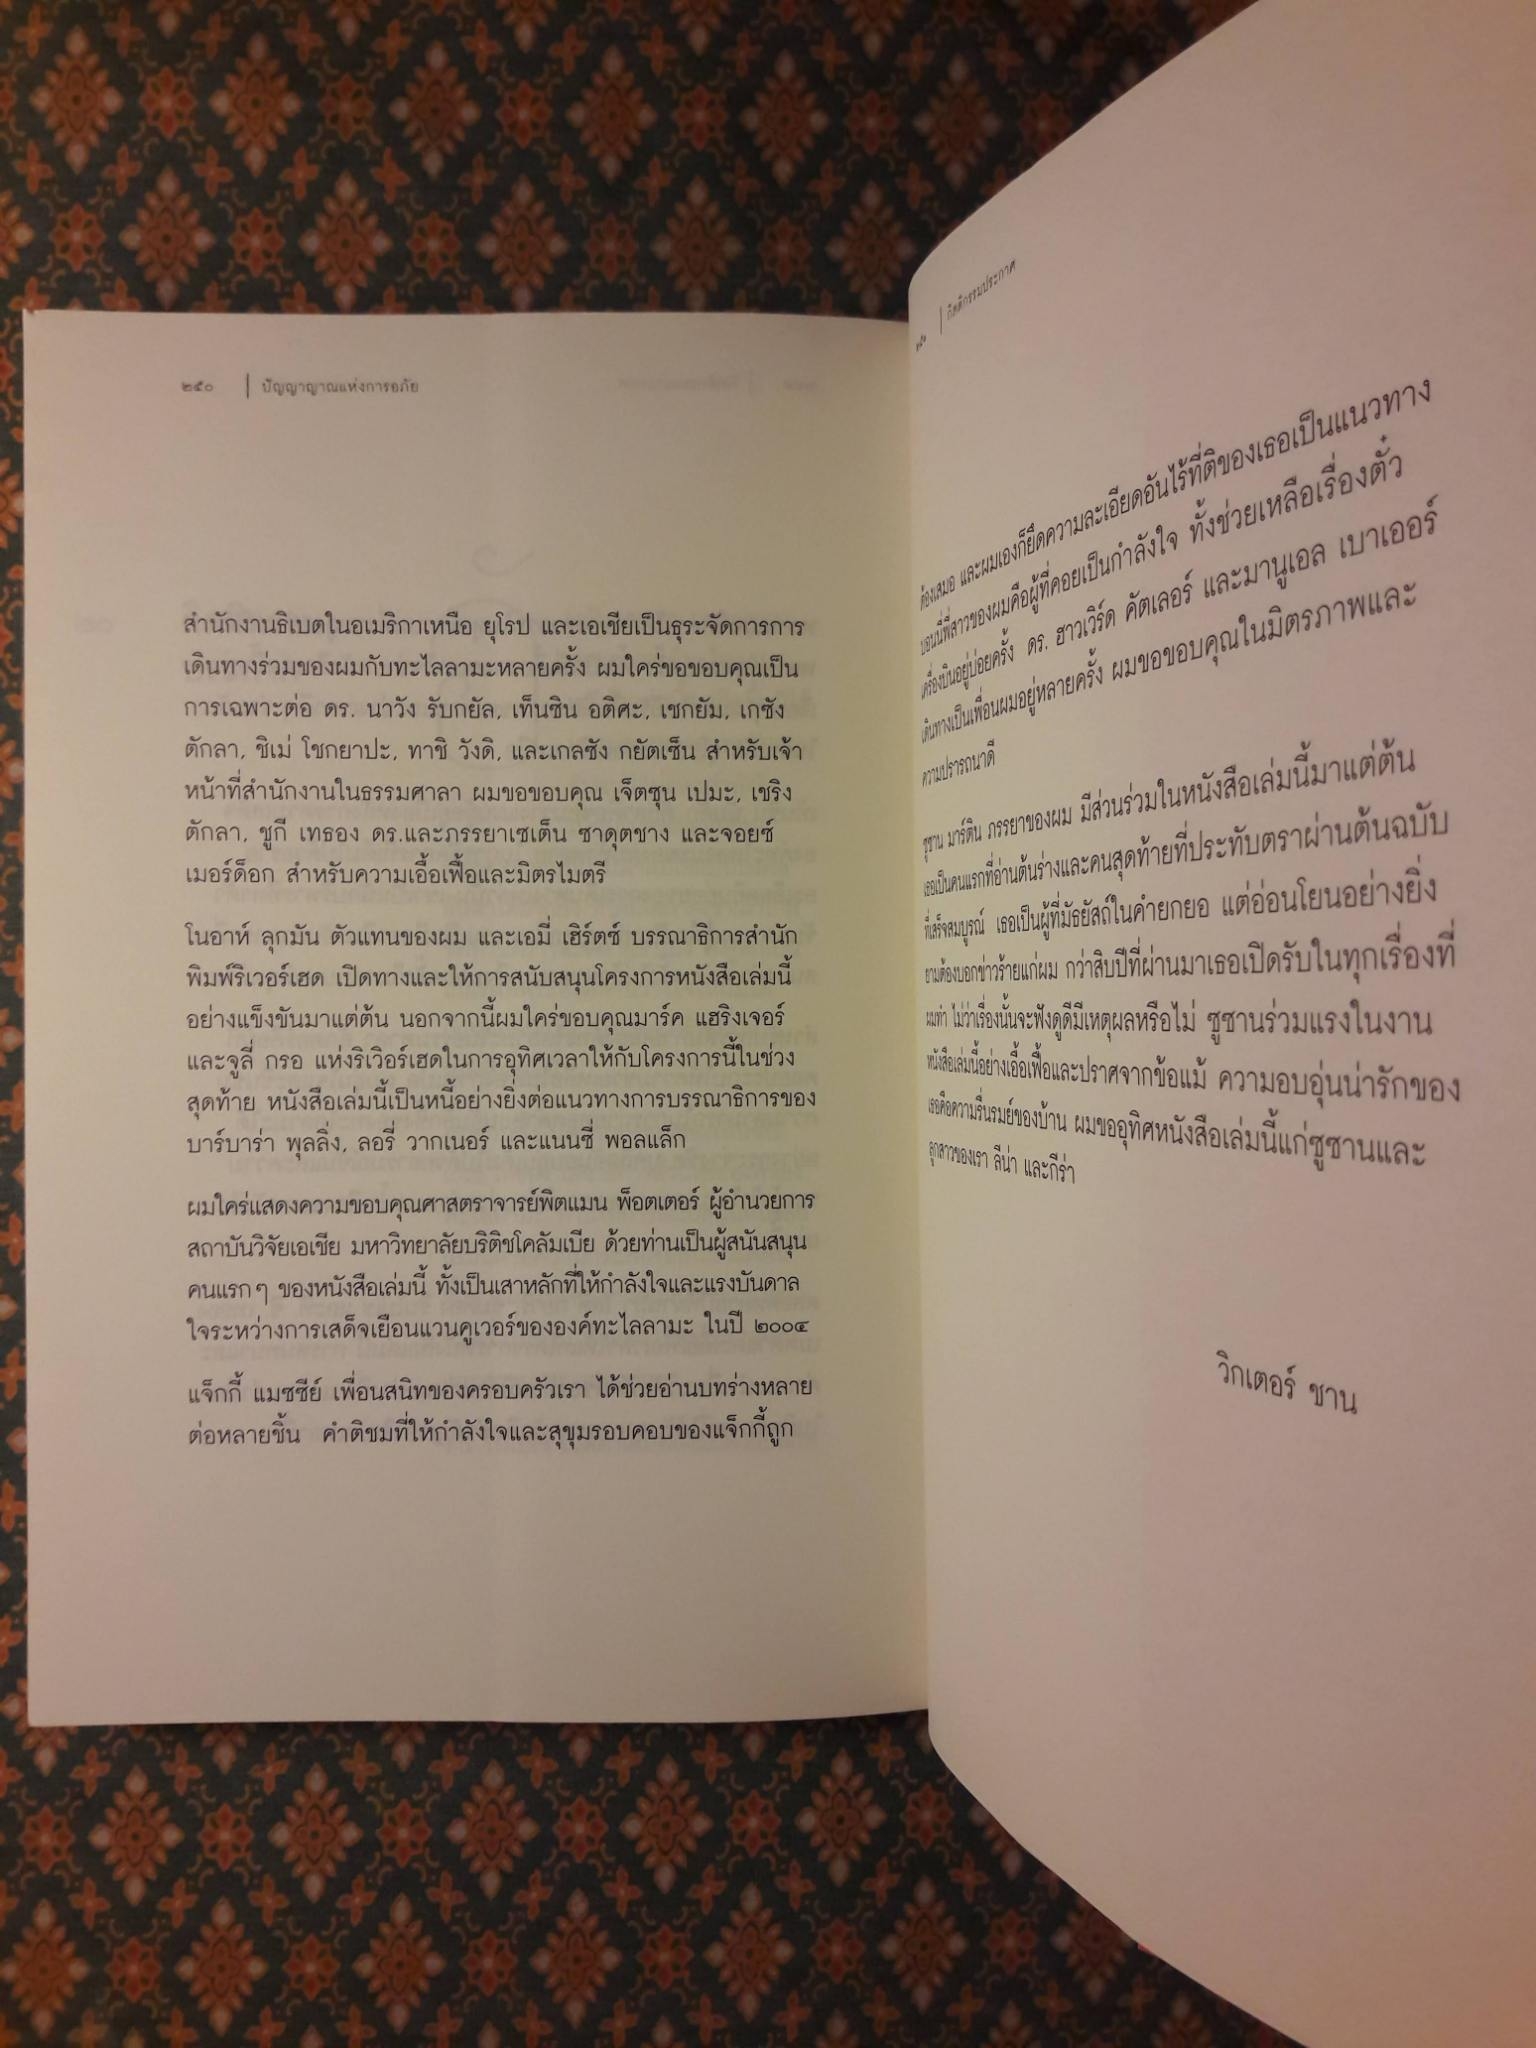 ๒๕๐ | ปัญญาญาณแห่งการอภัย
สำนักงานธิเบตในอเมริกาเหนือ ยุโรป และเอเชียเป็นธุระจัดการการ
เดินทางร่วมของผมกับทะไลลามะหลายครั้ง ผมใคร่ขอขอบคุณเป็น
การเฉพาะต่อ ดร. นาวัง รับกยัล, เท็นซิน อติศะ, เชกยัม, เกซัง
ตักลา, ชิเม่ โชกยาปะ, ทาชิ วังดิ, และเกลซัง กยัตเซ็น สำหรับเจ้า
หน้าที่สำนักงานในธรรมศาลา ผมขอขอบคุณ เจ็ตซุน เปมะ, เชริง
ตักลา, ชูกี เทธอง ดร.และภรรยาเซเต็น ซาดุตชาง และจอยซ์
เมอร์ด็อก สำหรับความเอื้อเฟื้อและมิตรไมตรี
โนอาห์ ลุกมัน ตัวแทนของผม และเอมี่ เฮิร์ตซ์ บรรณาธิการสำนัก
พิมพ์ริเวอร์เฮด เปิดทางและให้การสนับสนุนโครงการหนังสือเล่มนี้
อย่างแข็งขันมาแต่ต้น นอกจากนี้ผมใคร่ขอบคุณมาร์ค แฮริงเจอร์
และจูลี่ กรอ แห่งริเวิอร์เฮดในการอุทิศเวลาให้กับโครงการนี้ในช่วง
สุดท้าย หนังสือเล่มนี้เป็นหนี้อย่างยิ่งต่อแนวทางการบรรณาธิการของ
บาร์บาร่า พุลลิ่ง, ลอรี่ วากเนอร์ และแนนซี่ พอลแล็ก
ผมใคร่แสดงความขอบคุณศาสตราจารย์พิตแมน พ็อตเตอร์ ผู้อำนวยการ
สถาบันวิจัยเอเชีย มหาวิทยาลัยบริติชโคลัมเบีย ด้วยท่านเป็นผู้สนันสนุน
คนแรกๆ ของหนังสือเล่มนี้ ทั้งเป็นเสาหลักที่ให้กำลังใจและแรงบันดาล
ใจระหว่างการเสด็จเยือนแวนคูเวอร์ขององค์ทะไลลามะ ในปี ๒๐๐๔
แจ็กกี้ แมซซีย์ เพื่อนสนิทของครอบครัวเรา ได้ช่วยอ่านบทร่างหลาย
ต่อหลายชิ้น คำติชมที่ให้กำลังใจและสุขุมรอบคอบของแจ็กกี้ถูก
๒๕๑ | กิตติกรรมประกาศ
ต้องเสมอ และผมเองก็ยึดความละเอียดอันไร้ที่ติของเธอเป็นแนวทาง
บอนนี่พี่สาวของผมคือผู้ที่คอยเป็นกำลังใจ ทั้งช่วยเหลือเรื่องตั๋ว
เครื่องบินอยู่บ่อยครั้ง ดร. ฮาวเวิร์ด คัตเลอร์ และมานูเอล เบาเออร์
เดินทางเป็นเพื่อนผมอยู่หลายครั้ง ผมขอขอบคุณในมิตรภาพและ
ความปรารถนาดี
ซูซาน มาร์ติน ภรรยาของผม มีส่วนร่วมในหนังสือเล่มนี้มาแต่ต้น
เธอเป็นคนแรกที่อ่านต้นร่างและคนสุดท้ายที่ประทับตราผ่านต้นฉบับ
ที่เสร็จสมบูรณ์ เธอเป็นผู้ที่มัธยัสถ์ในคำยกยอ แต่อ่อนโยนอย่างยิ่ง
ยามต้องบอกข่าวร้ายแก่ผม กว่าสิบปีที่ผ่านมาเธอเปิดรับในทุกเรื่องที่
ผมทำ ไม่ว่าเรื่องนั้นจะฟังดูดีมีเหตุผลหรือไม่ ซูซานร่วมแรงในงาน
หนังสือเล่มนี้อย่างเอื้อเฟื้อและปราศจากข้อแม้ ความอบอุ่นน่ารักของ
เธอคือความรื่นรมย์ของบ้าน ผมขออุทิศหนังสือเล่มนี้แก่ซูซานและ
ลูกสาวของเรา ลีน่า และกีร่า
วิกเตอร์ ชาน